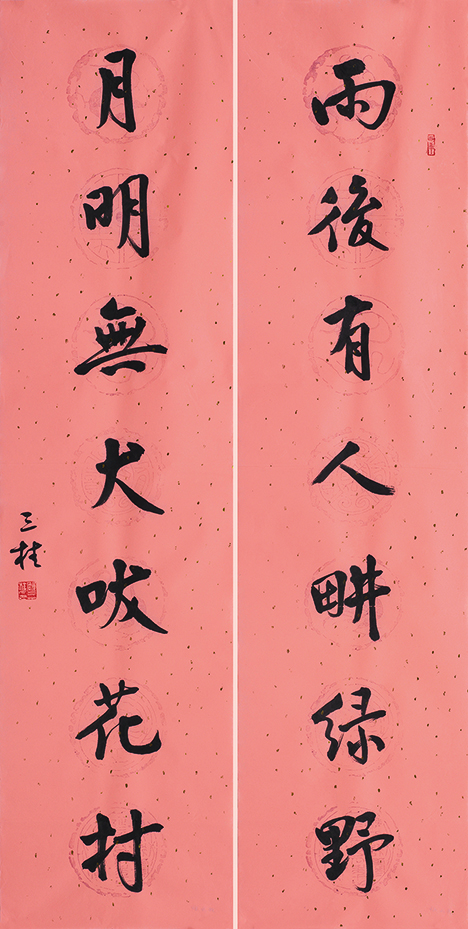 雨後有人畊绿野
月明無犬吠花村
三桂